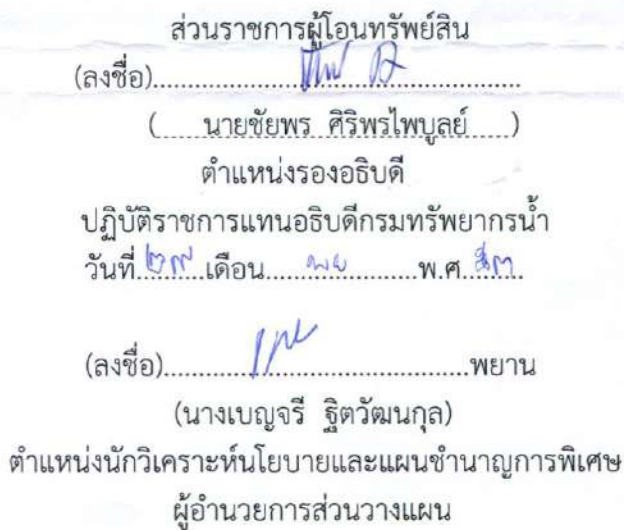 ส่วนราชการผู้โอนทรัพย์สิน
(ลงชื่อ)..................................................
(.....นายชัยพร ศิริพรไพบูลย์.....)
ตำแหน่งรองอธิบดี
ปฏิบัติราชการแทนอธิบดีกรมทรัพยากรน้ำ
วันที่.........เดือน.....พย.........พ.ศ.........
(ลงชื่อ)..........................................พยาน
(นางเบญจรี ฐิตวัฒนกุล)
ตำแหน่งนักวิเคราะห์นโยบายและแผนชำนาญการพิเศษ
ผู้อำนวยการส่วนวางแผน